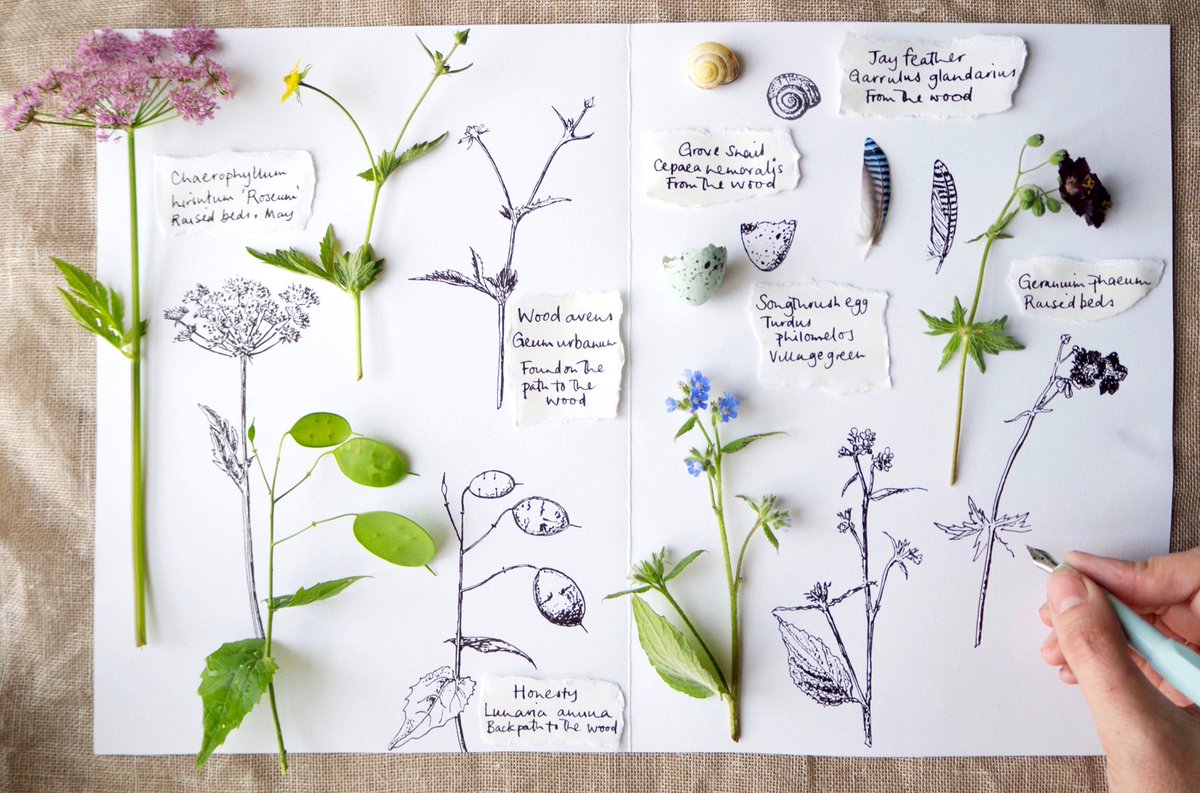 Chaerophyllum
hirsutum 'Roseum'
Raised beds. May
Wood avens
Geum urbanum
Found on the
path to the
wood
Honesty
Lunaria annua
Back path to the wood
Jay feather
Garrulus glandarius
From the wood
Grove Snail.
Cepaea nemoralis
From the wood
Songthrush egg
Turdus
philomelos
Village green
Geranium phaeum
Raised beds